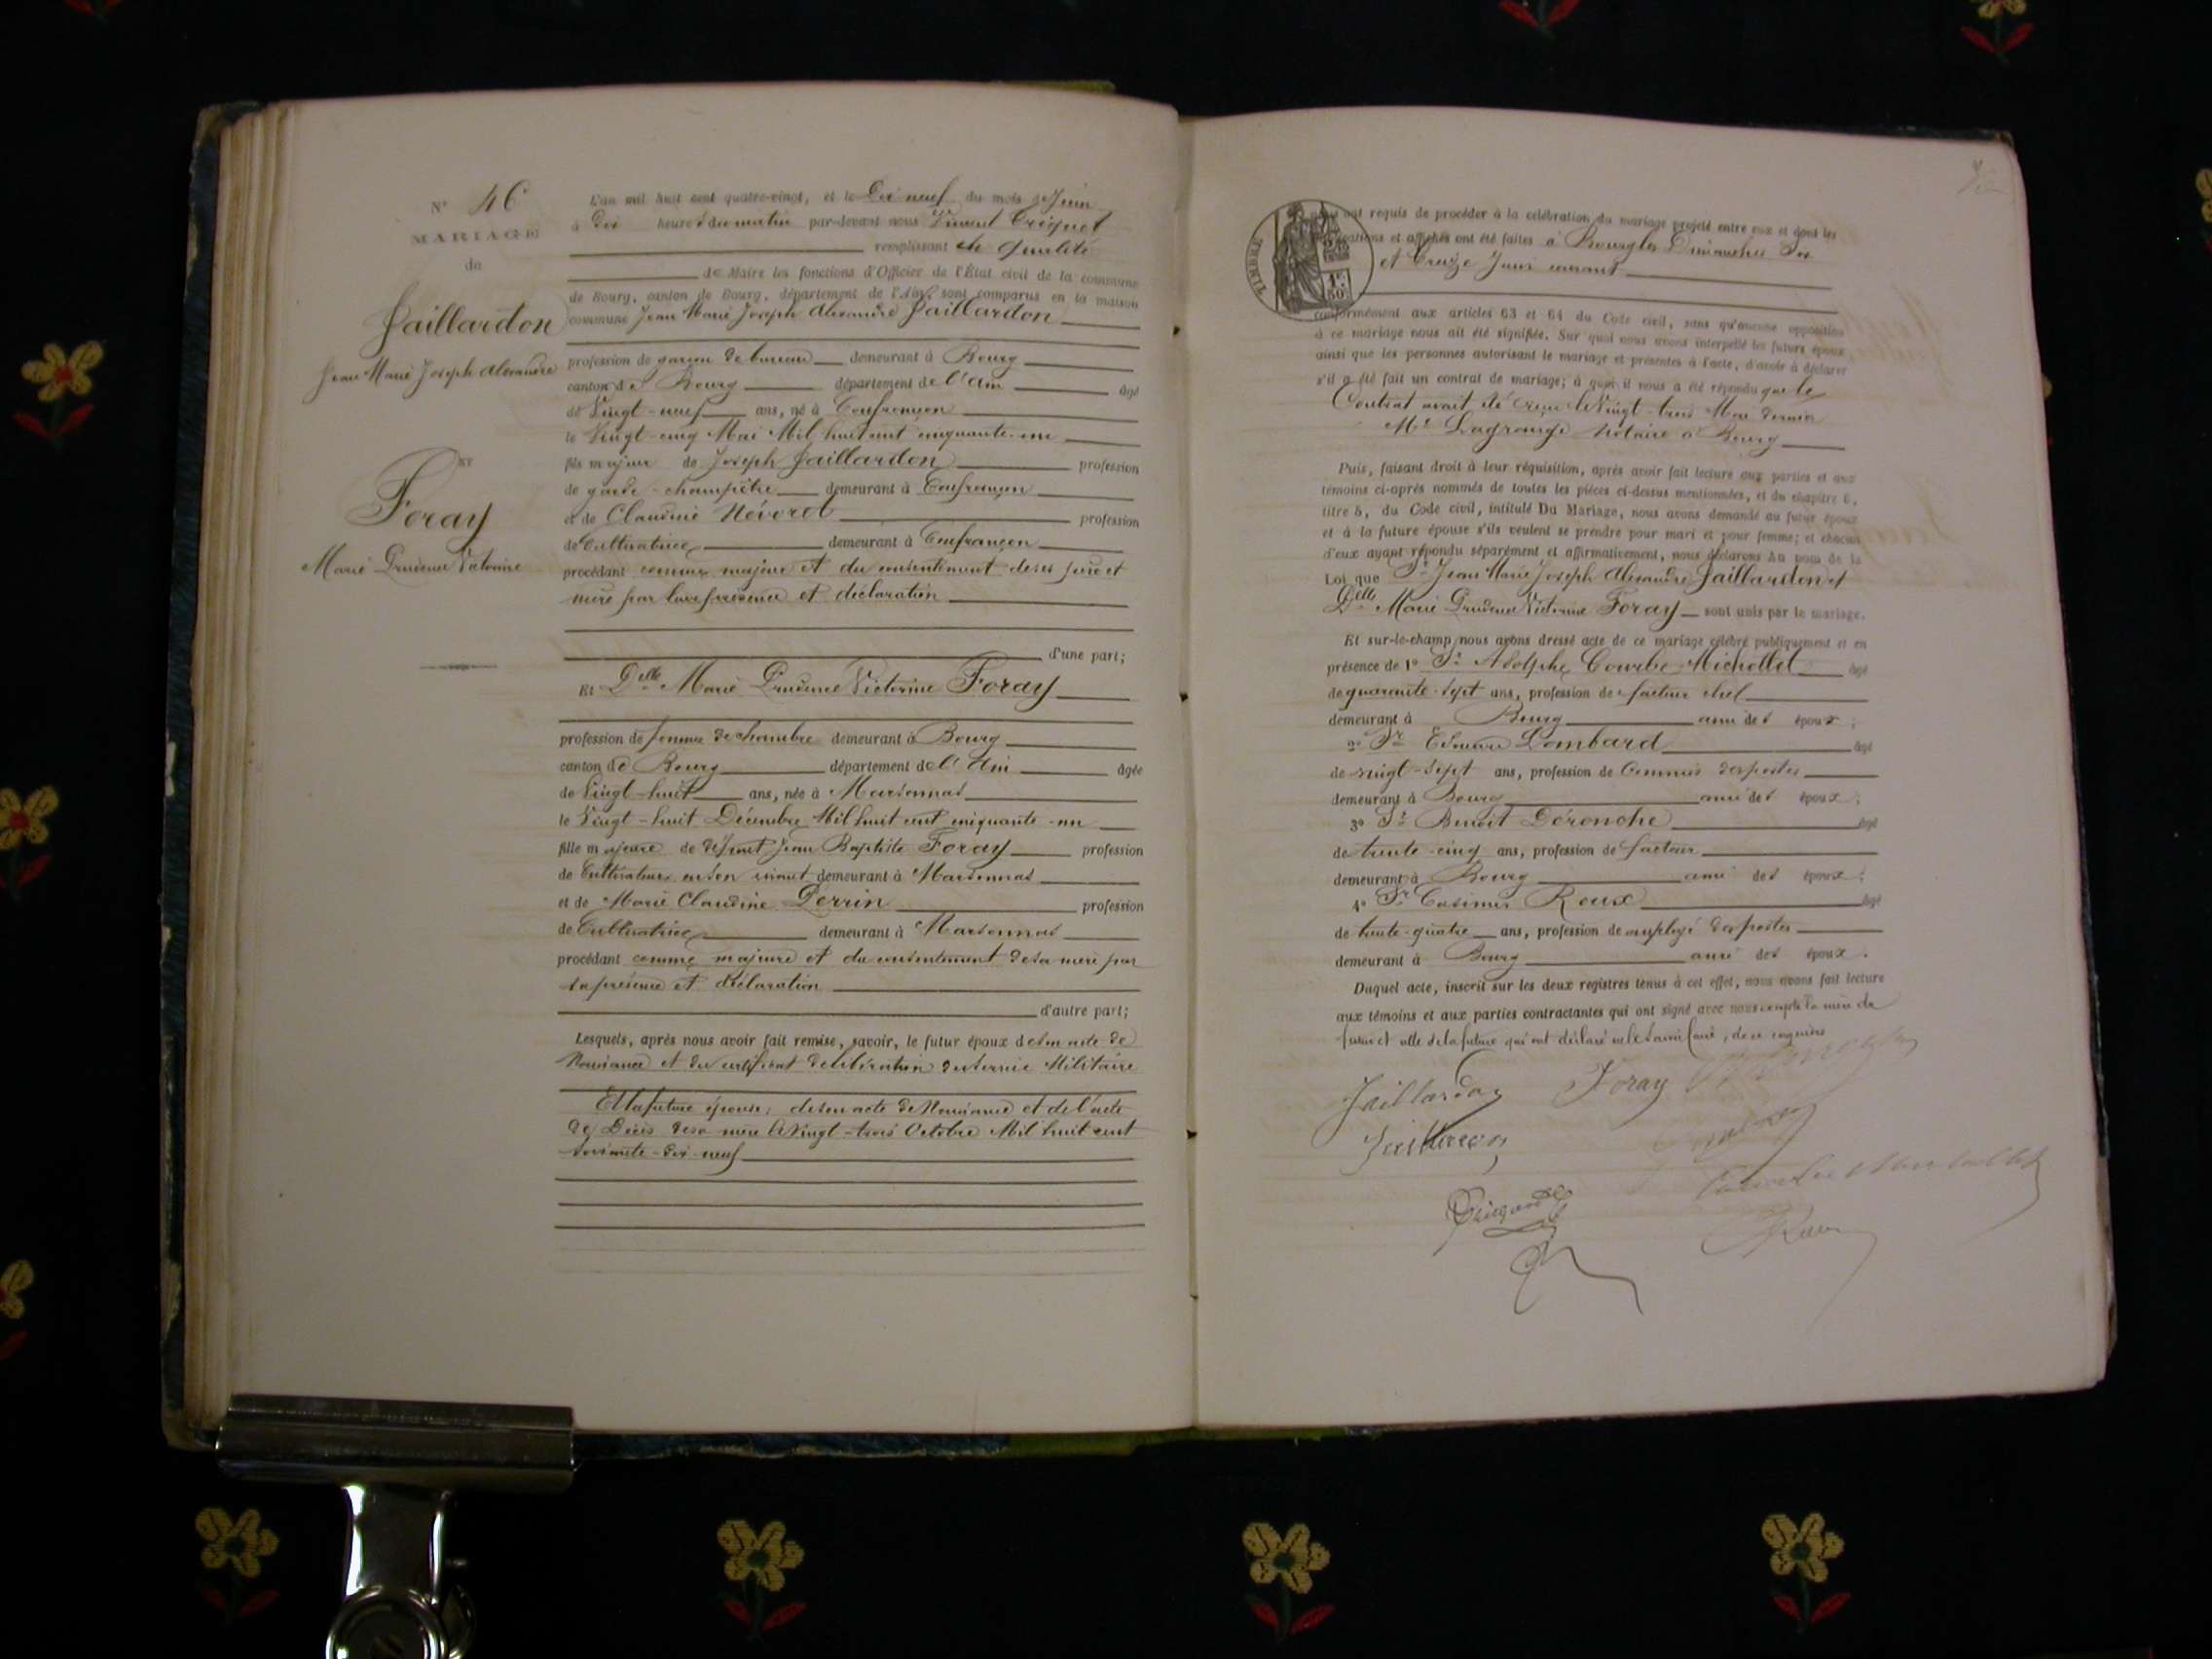 N° 46
MARIAGE
de
Jaillardon
Jean Marie Joseph Alexandre
ET
Foray
Marie Prudence Victorine
L'an mil huit cent quatre-vingt, et le Dix neuf du mois de Juin
à Dix heures du matin par-devant nous
remplissant en qualité
de Maire les fonctions d'Officier de l'État civil de la commune
de Bourg, canton de Bourg, département de l'Ain, sont comparus en la maison
commune Jean Marie Joseph Alexandre Jaillardon
profession de garçon de bureau demeurant à Bourg
canton de Bourg département de l'Ain âgé
de Vingt-neuf ans, né à Confrançon
le Vingt-cinq Mai Mil huit cent cinquante-un
fils majeur de Joseph Jaillardon profession
de garde-champêtre demeurant à Confrançon
et de Claudine Névoret profession
de Cultivatrice demeurant à Confrançon
procédant comme majeur et du consentement de ses père et
mère par leur présence et déclaration
d'une part;
Et Delle Marie Prudence Victorine Foray
profession de femme de chambre demeurant à Bourg
canton de Bourg département de l'Ain âgée
de Vingt-huit ans, née à Marsonnas
le Vingt-huit Décembre Mil huit cent cinquante-un
fille majeure de défunt Jean Baptiste Foray profession
de Cultivateur en son vivant demeurant à Marsonnas
et de Marie Claudine Perrin profession
de Cultivatrice demeurant à Marsonnas
procédant comme majeure et du consentement de sa mère par
sa présence et déclaration
d'autre part;
Lesquels, après nous avoir fait remise, savoir, le futur époux de son acte de
Naissance et du certificat de libération du service Militaire
Et la future épouse: de son acte de Naissance et de l'acte
de Décès de sa mère le Vingt-trois Octobre Mil huit cent
soixante-dix-neuf
TIMBRE
nous ont requis de procéder à la célébration du mariage projeté entre eux et dont les
publications et affiches ont été faites à Bourg les Dimanches Six
et Treize Juin courant
conformément aux articles 63 et 64 du Code civil, sans qu'aucune opposition
à ce mariage nous ait été signifiée. Sur quoi nous avons interpellé les futurs époux
ainsi que les personnes autorisant le mariage et présentes à l'acte, d'avoir à déclarer
s'il a été fait un contrat de mariage; à quoi il nous a été répondu que le
Contrat avait été reçu le Vingt-trois Mai dernier
Me Lagrange Notaire à Bourg
Puis, faisant droit à leur réquisition, après avoir fait lecture aux parties et aux
témoins ci-après nommés de toutes les pièces ci-dessus mentionnées, et du chapitre 6,
titre 5, du Code civil, intitulé Du Mariage, nous avons demandé au futur époux
et à la future épouse s'ils veulent se prendre pour mari et pour femme; et chacun
d'eux ayant répondu séparément et affirmativement, nous déclarons Au nom de la
Loi que Sr Jean Marie Joseph Alexandre Jaillardon et
Delle Marie Prudence Victorine Foray sont unis par le mariage.
Et sur-le-champ nous avons dressé acte de ce mariage célébré publiquement et en
présence de 1° Sr Adolphe Courbe-Michollet âgé
de quarante-sept ans, profession de facteur chef
demeurant à Bourg ami des époux;
2° Sr Edouard Lombard âgé
de vingt-sept ans, profession de Commis des postes
demeurant à Bourg ami des époux;
3° Sr Benoit Déronche âgé
de trente-cinq ans, profession de facteur
demeurant à Bourg ami des époux;
4° Sr Casimir Roux âgé
de trente-quatre ans, profession de employé des postes
demeurant à Bourg ami des époux.
Duquel acte, inscrit sur les deux registres tenus à cet effet, nous avons fait lecture
aux témoins et aux parties contractantes qui ont signé avec nous excepté la mère du
futur et celle de la future qui ont déclaré ne le savoir faire, de ce enquises
Jaillardon Foray
Jaillardon
Courbe Michollet
Roux